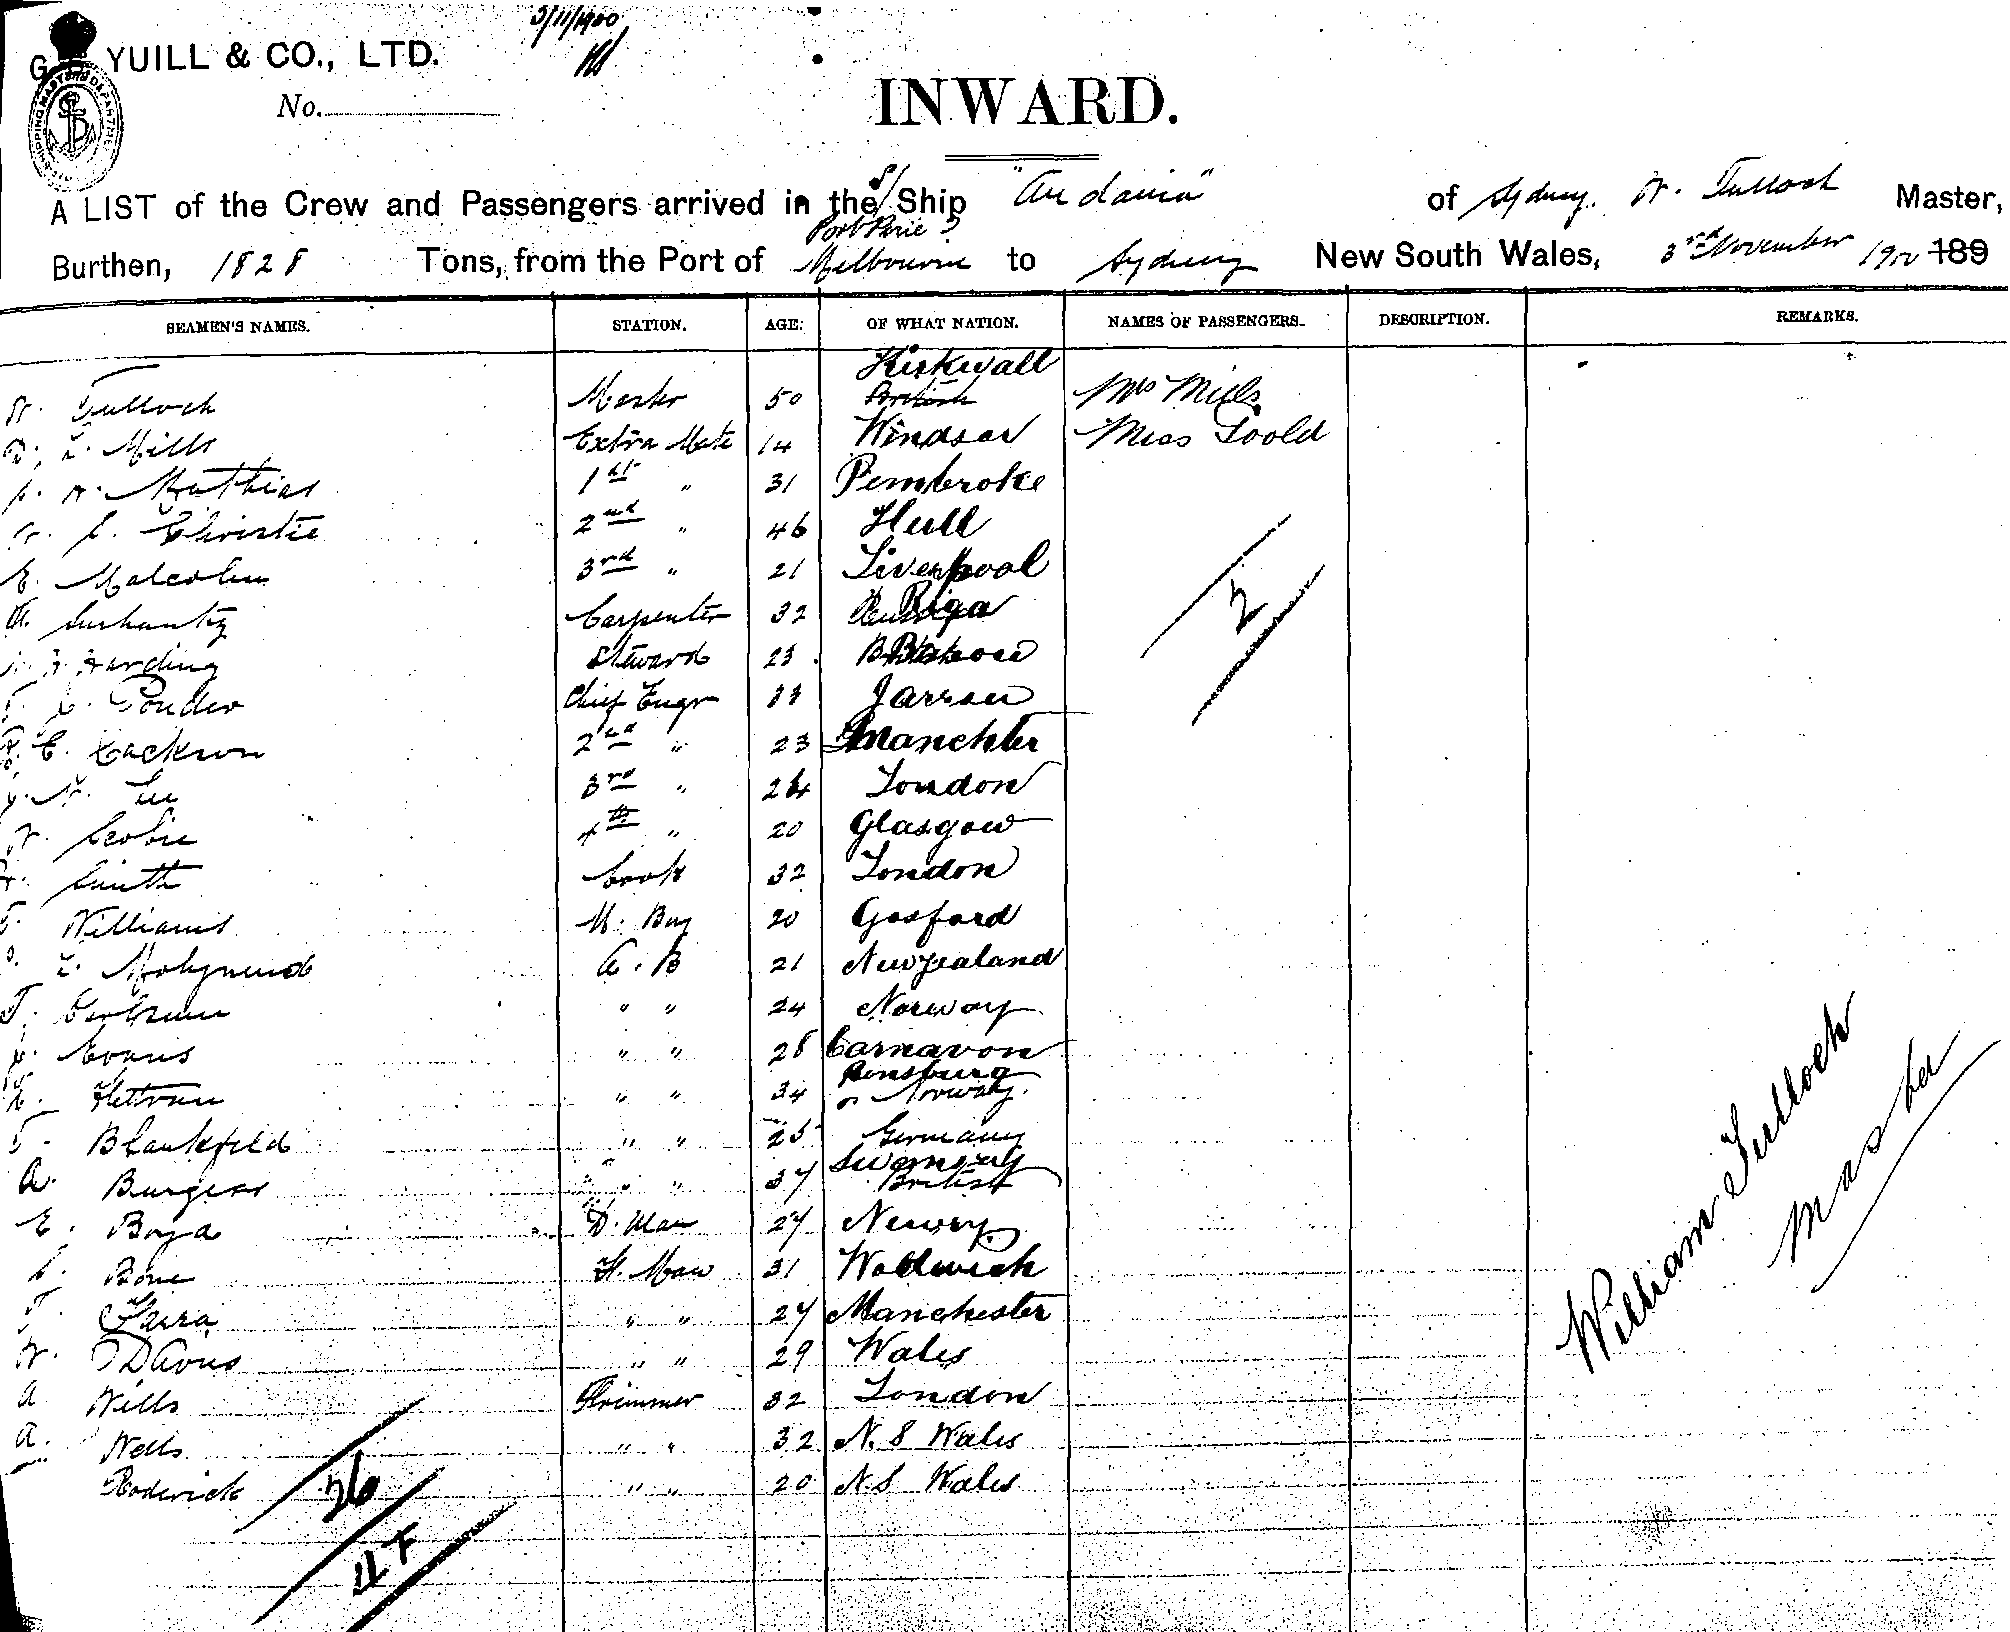 3/11/1900
G. S. YUILL & CO., LTD.
No.
INWARD.
A LIST of the Crew and Passengers arrived in the S/ Ship "Andania" of Sydney. W. Tulloch Master,
Burthen, 1828 Tons, from the Port of Port Pirie & Melbourne to Sydney New South Wales, 3rd November 1900 189
SEAMEN'S NAMES. STATION. AGE. OF WHAT NATION. NAMES OF PASSENGERS. DESCRIPTION. REMARKS.
W. Tulloch Master 50 Kirkwall British Mrs Mills
Mills Extra Mate 14 Windsor Miss Toold
Mathias 1st " 31 Pembroke
Christie 2nd " 46 Hull
E. Malcolm 3rd " 21 Liverpool
A. Carpenter 32 Riga
Harding Steward 23
Chief Engr 33 Jarrow
C. Jackson 2nd " 23 Manchster
Lee 3rd " 24 London
W. Scobie 4th " 20 Glasgow
Smith Cook 32 London
Williams M. Boy 20 Gosford
A. B 21 New Zealand
" " 24 Norway
Evans " " 28 Carnavon
" " 34 Tonsburg Norway.
Blankfeld " " 25 Germany
A. Burgess " " 37 Swansey British
E. Boyd D. Man 27 Newry
Bone F. Man 31 Woolwich
T. Farra " " 27 Manchester
W. Davis " " 29 Wales
A Wills Trimmer 32 London
A. Wells " " 32 N. S Wales
Roderick " " 20 N. S Wales
26
2
William Tulloch
Master